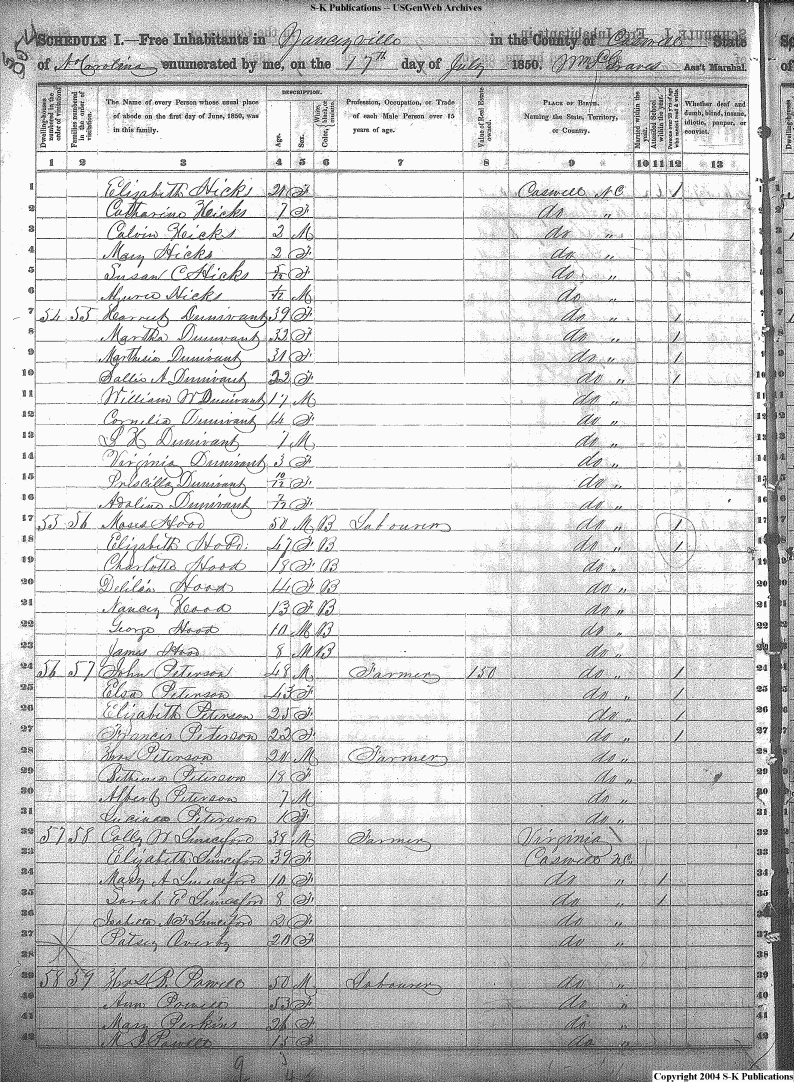 S-K Publications -- USGenWeb Archives
SCHEDULE I.—Free Inhabitants in Yanceyville in the County of Caswell State
of No Carolina enumerated by me, on the 17th day of July 1850. Wm P Graves Ass't Marshal.
Dwelling-houses numbered in the order of visitation.
Families numbered in the order of visitation.
The Name of every Person whose usual place of abode on the first day of June, 1850, was in this family.
DESCRIPTION.
Age.
Sex.
Color, White, black, or mulatto.
Profession, Occupation, or Trade of each Male Person over 15 years of age.
Value of Real Estate owned.
PLACE OF BIRTH.
Naming the State, Territory, or Country.
Married within the year.
Attended School within the year.
Persons over 20 y'rs of age who cannot read & write.
Whether deaf and dumb, blind, insane, idiotic, pauper, or convict.
1 2 3 4 5 6 7 8 9 10 11 12 13
1 Elizabeth Hicks F Caswell NC / 1
2 Catharine Hicks 7 F do " 2
3 Calvin Hicks 2 M do " 3
4 Mary Hicks 2 F do " 4
5 Susan C Hicks F do " 5
6 Hicks M do " 6
7 54 55 Harriet Dunivant 39 F do " / 7
8 Martha Dunivant 33 F do " / 8
9 Dunivant 31 F do " / 9
10 Sallie A Dunivant 22 F do " / 10
11 William W Dunivant 17 M do " 11
12 Cornelia Dunivant 14 F do " 12
13 S H Dunivant 7 M do " 13
14 Virginia Dunivant 3 F do " 14
15 Priscilla Dunivant 10/12 F do " 15
16 Adaline Dunivant 7/12 F do " 16
17 55 56 Moses Hood 50 M B Labourer do " / 17
18 Elizabeth Hood 47 F B do " / 18
19 Charlotte Hood 18 F B do " 19
20 Delilah Hood 14 F B do " 20
21 Nancy Hood 13 F B do " 21
22 George Hood 10 M B do " 22
23 James Hood 8 M B do " 23
24 56 57 John Peterson 48 M Farmer 150 do " / 24
25 Elsa Peterson 43 F do " / 25
26 Elizabeth Peterson 25 F do " / 26
27 Francis Peterson 22 F do " / 27
28 Thos Peterson 20 M Farmer do " 28
29 Bethenia Peterson 18 F do " 29
30 Albert Peterson 7 M do " 30
31 Lucinda Peterson 1 F do " 31
32 57 58 Colby W 38 M Farmer Virginia 32
33 Elizabeth 39 F Caswell NC 33
34 Mary A 10 F do " / 34
35 Sarah E 8 F do " / 35
36 Isabella 2 F do " 36
37 Patsey Overby 20 F do " 37
38 38
39 58 59 Thos B. Powell 50 M Labourer do " 39
40 Ann Powell 53 F do " 40
41 Mary Perkins 26 F do " 41
42 M S Powell 15 F do " 42
Copyright 2004 S-K Publications